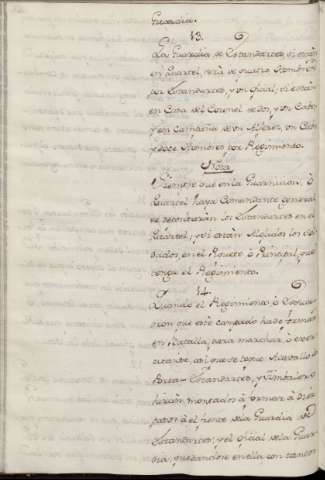 Guardia.
13.
La Guardia de Estandartes, si están
en Quartel, será de quatro Hombres
por Estandartes, y un oficial; si están
en Casa del Coronel de dos, y un Cabo
y en Campaña de un Alferez, un Cabo
y doce Hombres por Regimiento.
Nota
Siempre que en la Guarnicion, ò
Quartel haya Comandante general
se depositarán los Estandartes en el
Quartel; y si están Alojados los Sol-
dados, en el Piquete ò Principal, que
tenga el Regimiento.
14.
Quando el Regimiento, ò Esqua-
dron que esté campado ha de formar
en Batalla, para marchar, ò exer-
citarse, así que se toque Acavallo los
Porta-Estandartes, y Timbalero
hirán montados à formar à diez
pasos à el frente de la Guardia de
Estandartes; y el oficial de la Guar-
dia, quedandose en ella con